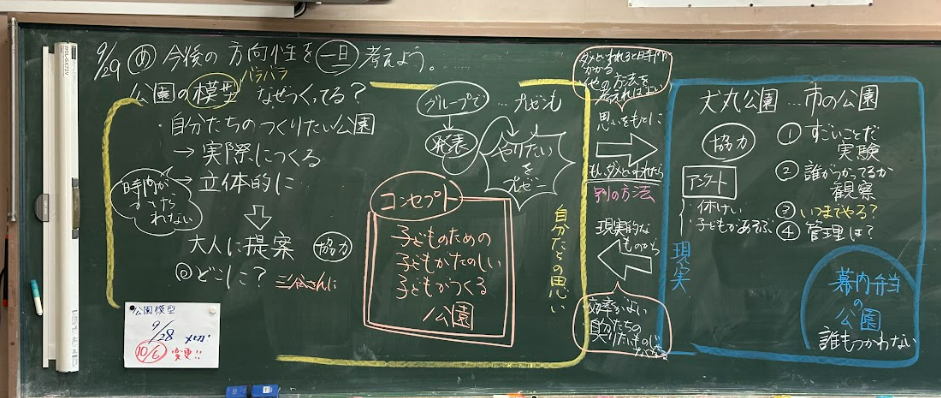 9/29 め 今後の方向性を一旦考えよう。
バラバラ
公園の模型 なぜつくってる?
・自分たちのつくりたい公園
→実際につくる
→立体的に
時間が
われない
大人に提案 協力
◎どこに? 三谷さんに
公園模型
9/28
10/6 変更!!
グループで …プレゼンも
発表
やりたい
を
プレゼン
コンセプト
子どものための
子どもがたのしい
子どもがつくる
公園
自分たちの思い
ダメといわれると時間が
かかる。
他の方法を
考えればよい
思いをもとに
もしダメといわれたら
別の方法
現実的な
ものから
効率がよい
自分たちの
現実
犬丸公園…市の公園
協力
アンケート
休けい
子どもがあそぶ
① すごいことだ
実験
② 誰がつかってるか
観察
③ いつまでやる?
④ 管理は?
幕内弁当
の
公園
誰もつかわない